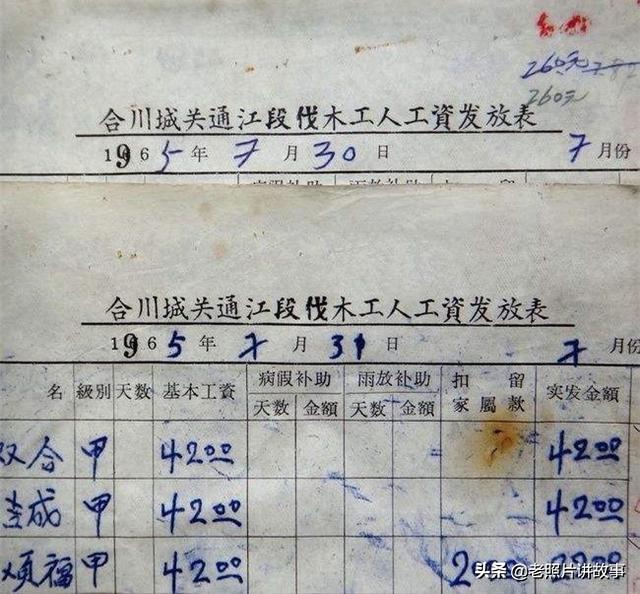 260元
260元
合川城关通江段伐木工人工資发放表
1965年7月30日 7月份
病假补助 雨放补助 留
合川城关通江段伐木工人工資发放表
1965年7月31日 7月份
名 級別 天数 基本工資 病假补助 雨放补助 扣留 实发金額
天数 金額 天数 金額 家屬款
双合 甲 4200 4200
成 甲 4200 4200
顺福 甲 4200 2200
头条 @老照片讲故事